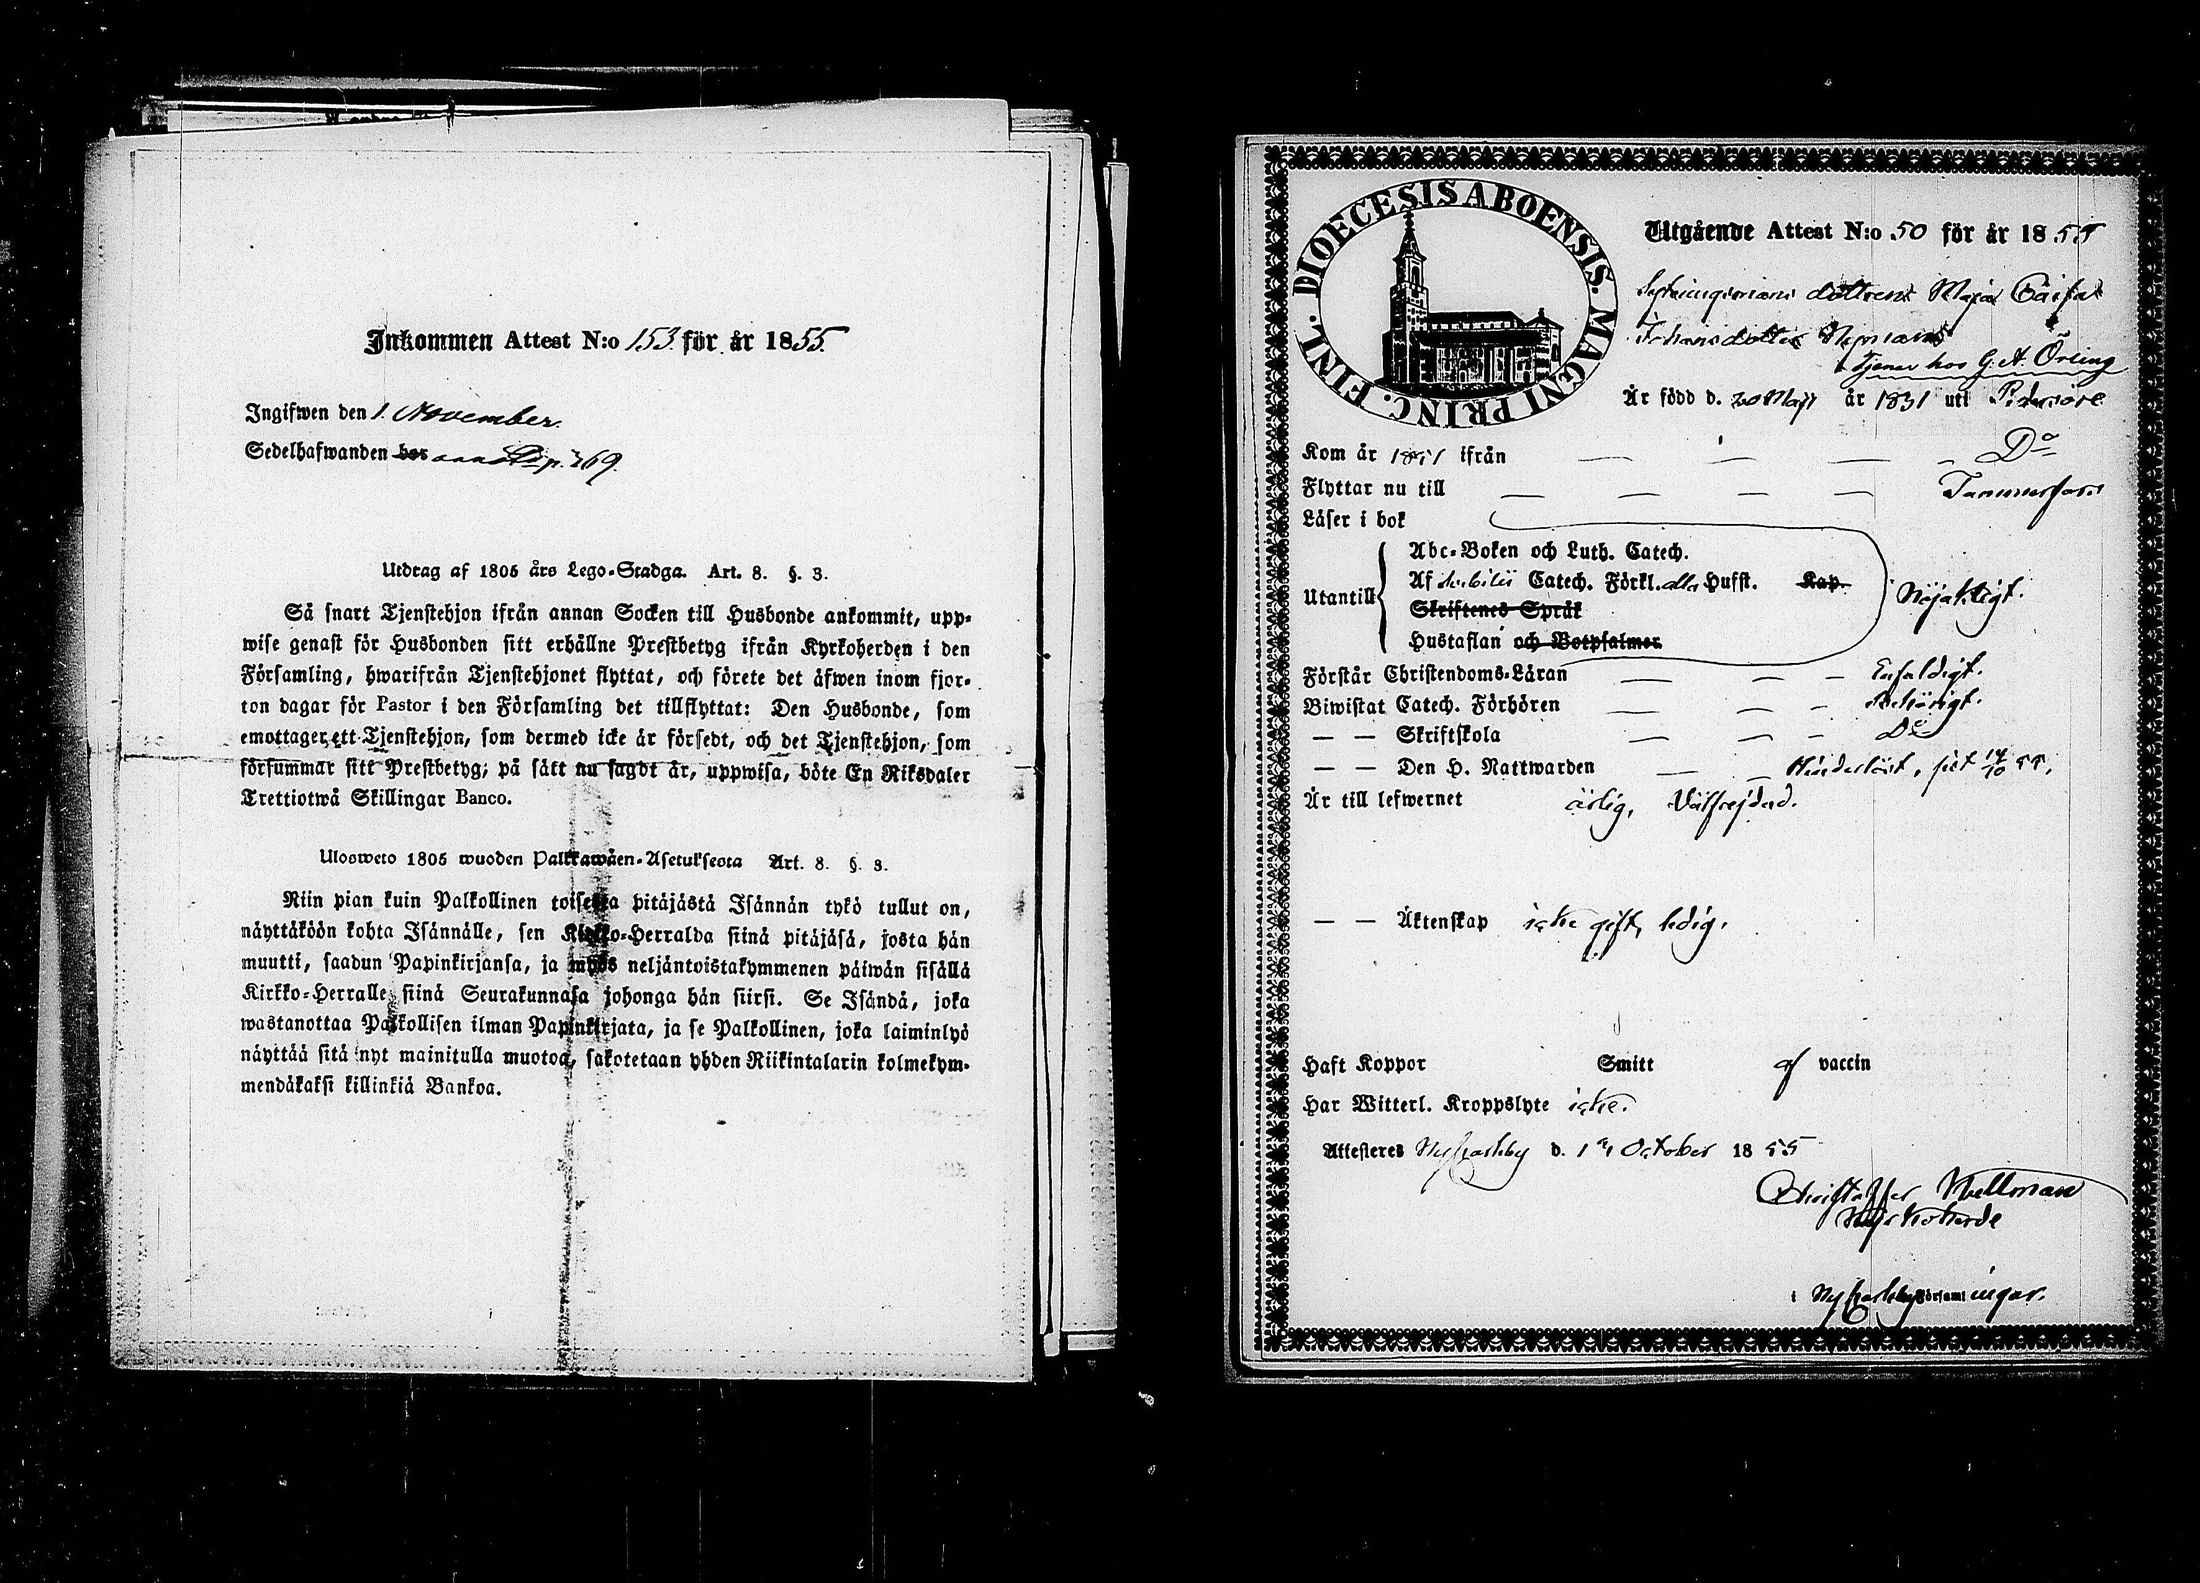 Inkommen Attest N:o 153 för år 1855.
Ingifwen den 1 November.
Sedelhafwanden bor p. 269.
Utdrag af 1805 års Lego-Stadga. Art. 8. §. 3.
Så snart Tjenstehjon ifrån annan Socken till Husbonde ankommit, upp-
wise genast för Husbonden sitt erhållne Prestbetyg ifrån Kyrkoherden i den
Församling, hwarifrån Tjenstehjonet flyttat, och förete det äfwen inom fjor-
ton dagar för Pastor i den Församling det tillflyttat: Den Husbonde, som
emottager ett Tjenstehjon, som dermed icke är försedt, och det Tjenstehjon, som
försummar sitt Prestbetyg; på sätt nu sagdt är, uppwisa, böte En Riksdaler
Trettiotwå Skillingar Banco.
Ulosweto 1805 wuoden Palkkawäen-Asetuksesta Art. 8. §. 3.
Niin pian kuin Palkollinen toisesta pitäjästä Isännän tykö tullut on,
näyttäköön kohta Isännälle, sen Kirkko-Herralda siinä pitäjäsä, josta hän
muutti, saadun Papinkirjansa, ja myös neljäntoistakymmenen päiwän sisällä
Kirkko-Herralle siinä Seurakunnasa johonga hän siirsi. Se Isändä, joka
wastanottaa Palkollisen ilman Papinkirjata, ja se Palkollinen, joka laiminlyö
näyttää sitä nyt mainitulla muotoa, sakotetaan yhden Riikintalarin kolmekym-
mendäkaksi killinkiä Bankoa.
DIOECESIS ABOENSIS. MAGNI PRINC. FINL.
Utgående Attest N:o 50 för år 1855
dottren Maja Caisa
Johansdotter Nyman
Tjenar hos G. A. Öreing
År född d. 20 Maji år 1831 uti Pedersöre
Kom år 1851 ifrån — — — — Do
Flyttar nu till — — — — Tammerfors
Läser i bok
Utantill
Abc-Boken och Luth. Catech.
Af Svebilii Catech. Förkl. eller Hufst. Kap.
Skriftenes Språk
Hustaflan och Botpsalmer
Nöjaktigt.
Förstår Christendoms-Läran — — — Enfaldigt.
Biwistat Catech. Förhören — — — Behörigt.
— — Skriftskola — — — Do
— — Den H. Nattwarden — — Hinderlöst, sist 14/10 55.
Är till lefwernet ärlig, Välfrejdad.
— — Äktenskap icke gift, ledig.
Haft Koppor Smitt af vaccin
Har Witterl. Kroppslyte icke.
Attesteras Nykarleby d. October 1855
Christoffer Hellman
Kyrkoherde
i Nykarleby Församlingar.